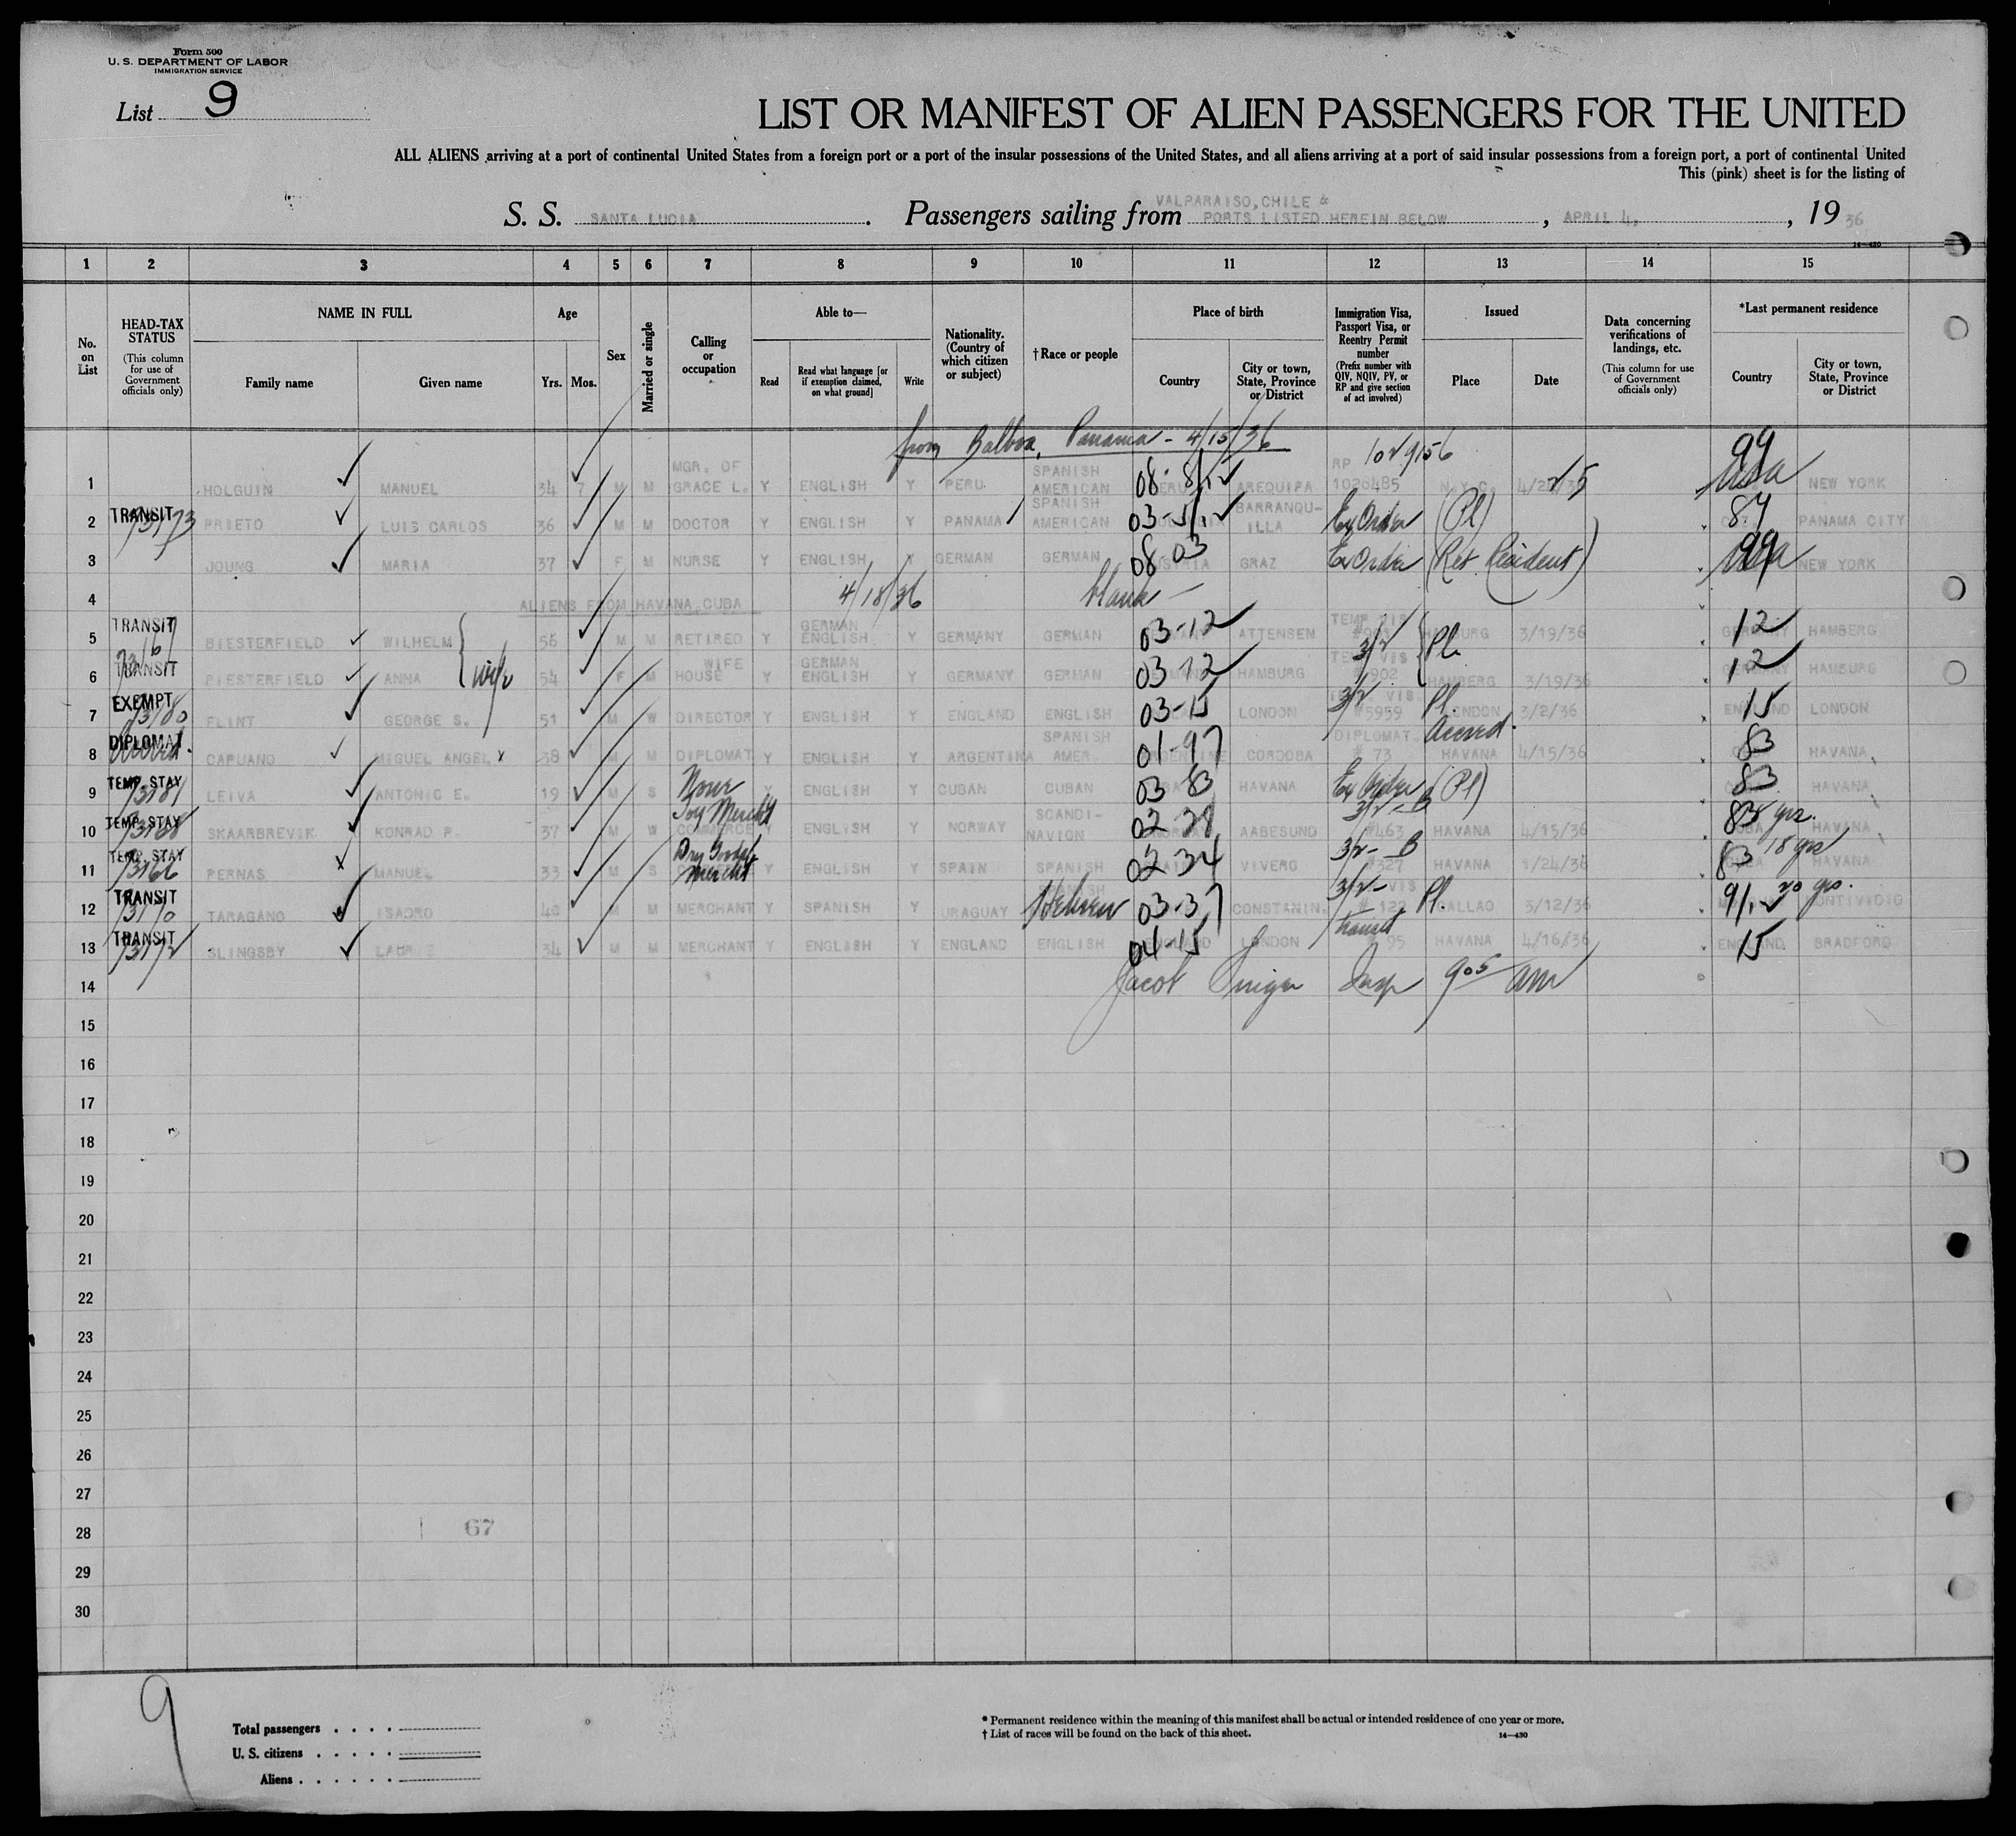 Form 500
U. S. DEPARTMENT OF LABOR
IMMIGRATION SERVICE
List 9
LIST OR MANIFEST OF ALIEN PASSENGERS FOR THE UNITED
ALL ALIENS arriving at a port of continental United States from a foreign port or a port of the insular possessions of the United States, and all aliens arriving at a port of said insular possessions from a foreign port, a port of continental United
This (pink) sheet is for the listing of
S. S. SANTA LUCIA. Passengers sailing from VALPARAISO, CHILE & PORTS LISTED HEREIN BELOW, APRIL 4, 1936
14—430
1 2 3 4 5 6 7 8 9 10 11 12 13 14 15
No. on List
HEAD-TAX STATUS (This column for use of Government officials only)
NAME IN FULL
Family name Given name
Age
Yrs. Mos.
Sex
Married or single
Calling or occupation
Able to—
Read Read what language [or if exemption claimed, on what ground] Write
Nationality. (Country of which citizen or subject)
†Race or people
Place of birth
Country City or town, State, Province or District
Immigration Visa, Passport Visa, or Reentry Permit number (Prefix number with QIV, NQIV, PV, or RP and give section of act involved)
Issued
Place Date
Data concerning verifications of landings, etc. (This column for use of Government officials only)
*Last permanent residence
Country City or town, State, Province or District
from Balboa, Panama - 4/15/36
1 HOLGUIN MANUEL 34 7 M M MGR. OF GRACE L. Y ENGLISH Y PERU SPANISH AMERICAN 08- AREQUIPA RP 1028485 1029156 N.Y.C. 99 USA NEW YORK
2 TRANSIT PRIETO LUIS CARLOS 36 M M DOCTOR Y ENGLISH Y PANAMA SPANISH AMERICAN BARRANQUILLA Ex Order (Pl) 87 PANAMA CITY
3 JOUNG MARIA 37 F M NURSE Y ENGLISH Y GERMAN GERMAN 08-03 GRAZ Ex Order (Ret Resident) 99 USA NEW YORK
4 ALIENS FROM HAVANA, CUBA 4/18/36 blank
5 TRANSIT BIESTERFIELD WILHELM 56 M M RETIRED Y GERMAN ENGLISH Y GERMANY GERMAN 03-12 ATTENSEN 3/2 Pl. 3/19/36 12 HAMBERG
6 TRANSIT BIESTERFIELD ANNA wife 54 F M HOUSE WIFE Y GERMAN ENGLISH Y GERMANY GERMAN 03-12 HAMBURG 902 HAMBERG 3/19/36 12 HAMBURG
7 EXEMPT FLINT GEORGE S. 51 M W DIRECTOR Y ENGLISH Y ENGLAND ENGLISH 03-15 LONDON 3/2 #5959 Pl. LONDON 3/2/36 15 ENGLAND LONDON
8 DIPLOMAT CAPUANO MIGUEL ANGEL X 38 M M DIPLOMAT Y ENGLISH Y ARGENTINA SPANISH AMER. 01-97 CORDOBA DIPLOMAT # 73 Accred. HAVANA 4/15/36 83 HAVANA
9 TEMP. STAY LEIVA ANTONIO E. 19 M S None Y ENGLISH Y CUBAN CUBAN 03 83 HAVANA Ex Order (Pl) 83 HAVANA
10 TEMP. STAY SKAARBREVIK KONRAD P. 37 M W COMMERCE Y ENGLISH Y NORWAY SCANDINAVION 02-28 AABESUND 3/2-B #463 HAVANA 4/15/36 83 yrs. HAVANA
11 TEMP. STAY PERNAS MANUEL 33 M S Dry Goods Mercht Y ENGLISH Y SPAIN SPANISH 02-34 VIVERO 3/2-B #327 HAVANA 83 18 yrs HAVANA
12 TRANSIT TARAGANO ISADRO 40 M M MERCHANT Y SPANISH Y URAGUAY Hebrew 03-37 CONSTANIN. 3/2- # 122 Pl. CALLAO 3/12/36 20 yrs.
13 TRANSIT SLINGSBY 34 M M MERCHANT Y ENGLISH Y ENGLAND ENGLISH 04-15 LONDON Transit 95 HAVANA 4/16/36 15 ENGLAND BRADFORD
14 Jacob Insp 9 05 am
15
16
17
18
19
20
21
22
23
24
25
26
27
28 67
29
30
9
Total passengers
U. S. citizens
Aliens
* Permanent residence within the meaning of this manifest shall be actual or intended residence of one year or more.
† List of races will be found on the back of this sheet.
14—430